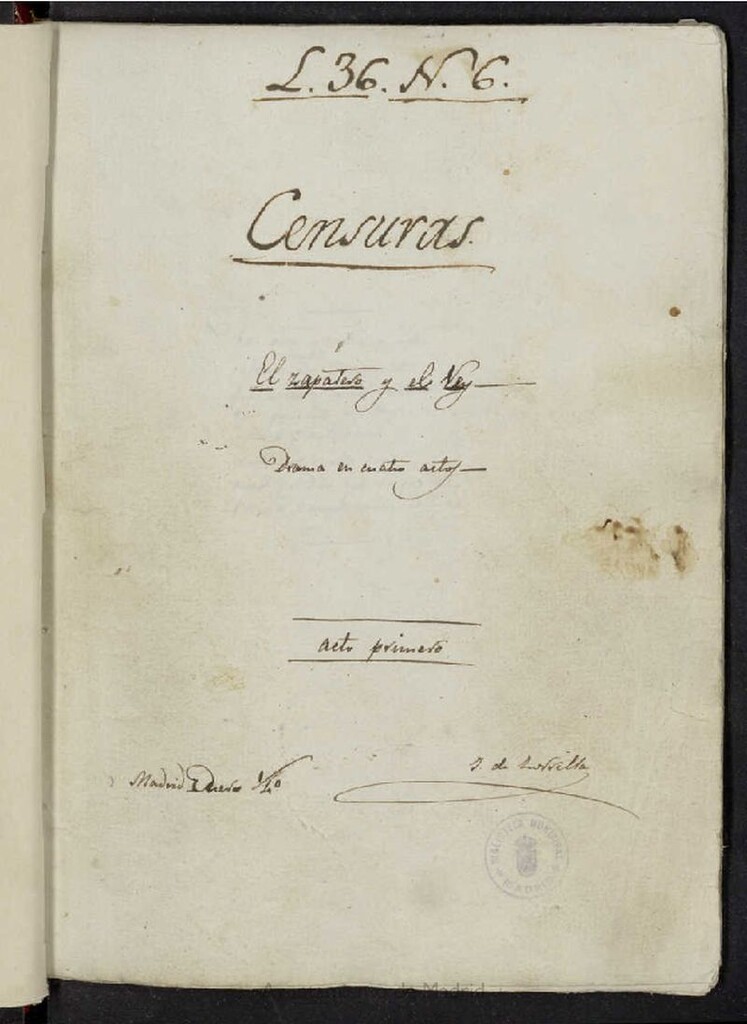 L. 36. N. 6.
Censuras.
El zapatero y el Rey
Drama en cuatro actos
acto primero
Madrid Enero
J. de Zorrilla
BIBLIOTECA MUNICIPAL
MADRID
de Madrid